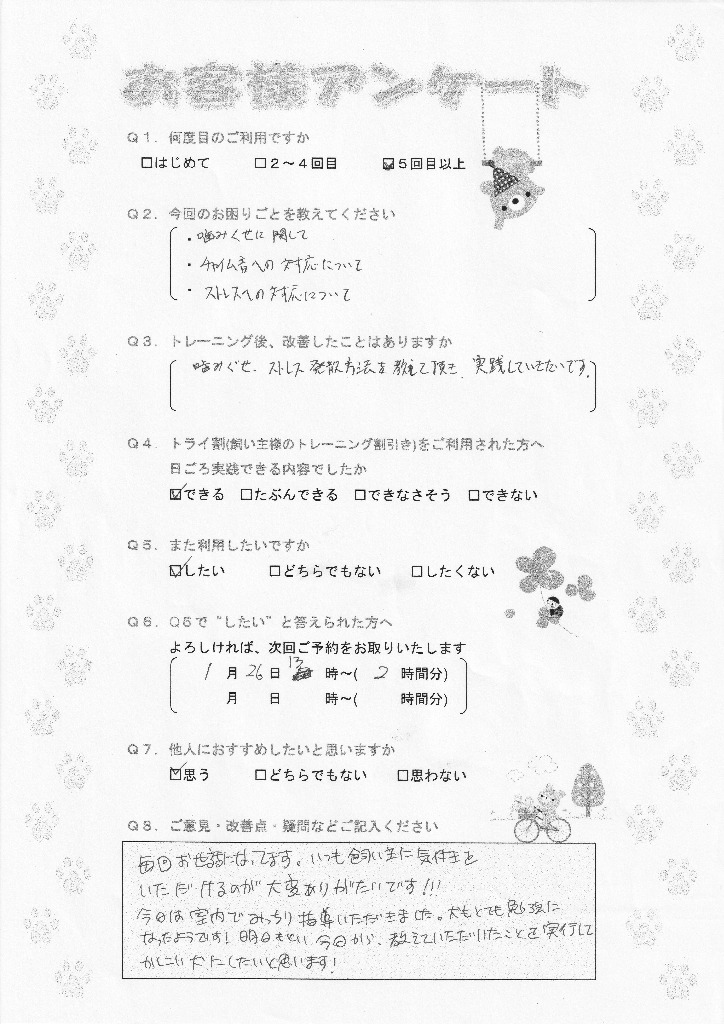 お客様アンケート
Q1．何度目のご利用ですか
□はじめて　□2～4回目　☑5回目以上
Q2．今回のお困りごとを教えてください
・噛みぐせに関して
・チャイム音への対応について
・ストレスへの対応について
Q3．トレーニング後、改善したことはありますか
噛みぐせ、ストレス発散方法を教えて頂き、実践していきたいです。
Q4．トライ割(飼い主様のトレーニング割引き)をご利用された方へ
日ごろ実践できる内容でしたか
☑できる　□たぶんできる　□できなさそう　□できない
Q5．また利用したいですか
☑したい　□どちらでもない　□したくない
Q6．Q5で"したい"と答えられた方へ
よろしければ、次回ご予約をお取りいたします
1月26日13時～(2時間分)
月　日　時～(　時間分)
Q7．他人におすすめしたいと思いますか
☑思う　□どちらでもない　□思わない
Q8．ご意見・改善点・疑問などご記入ください
毎回お世話になってます。いつも飼い主に気付きを
いただけるのが大変ありがたいです!!!
今日は室内でみっちり指導いただきました。犬もとても勉強に
なったようです! 明日もとい今日から、教えていただいたことを実行して
かしこい犬にしたいと思います!